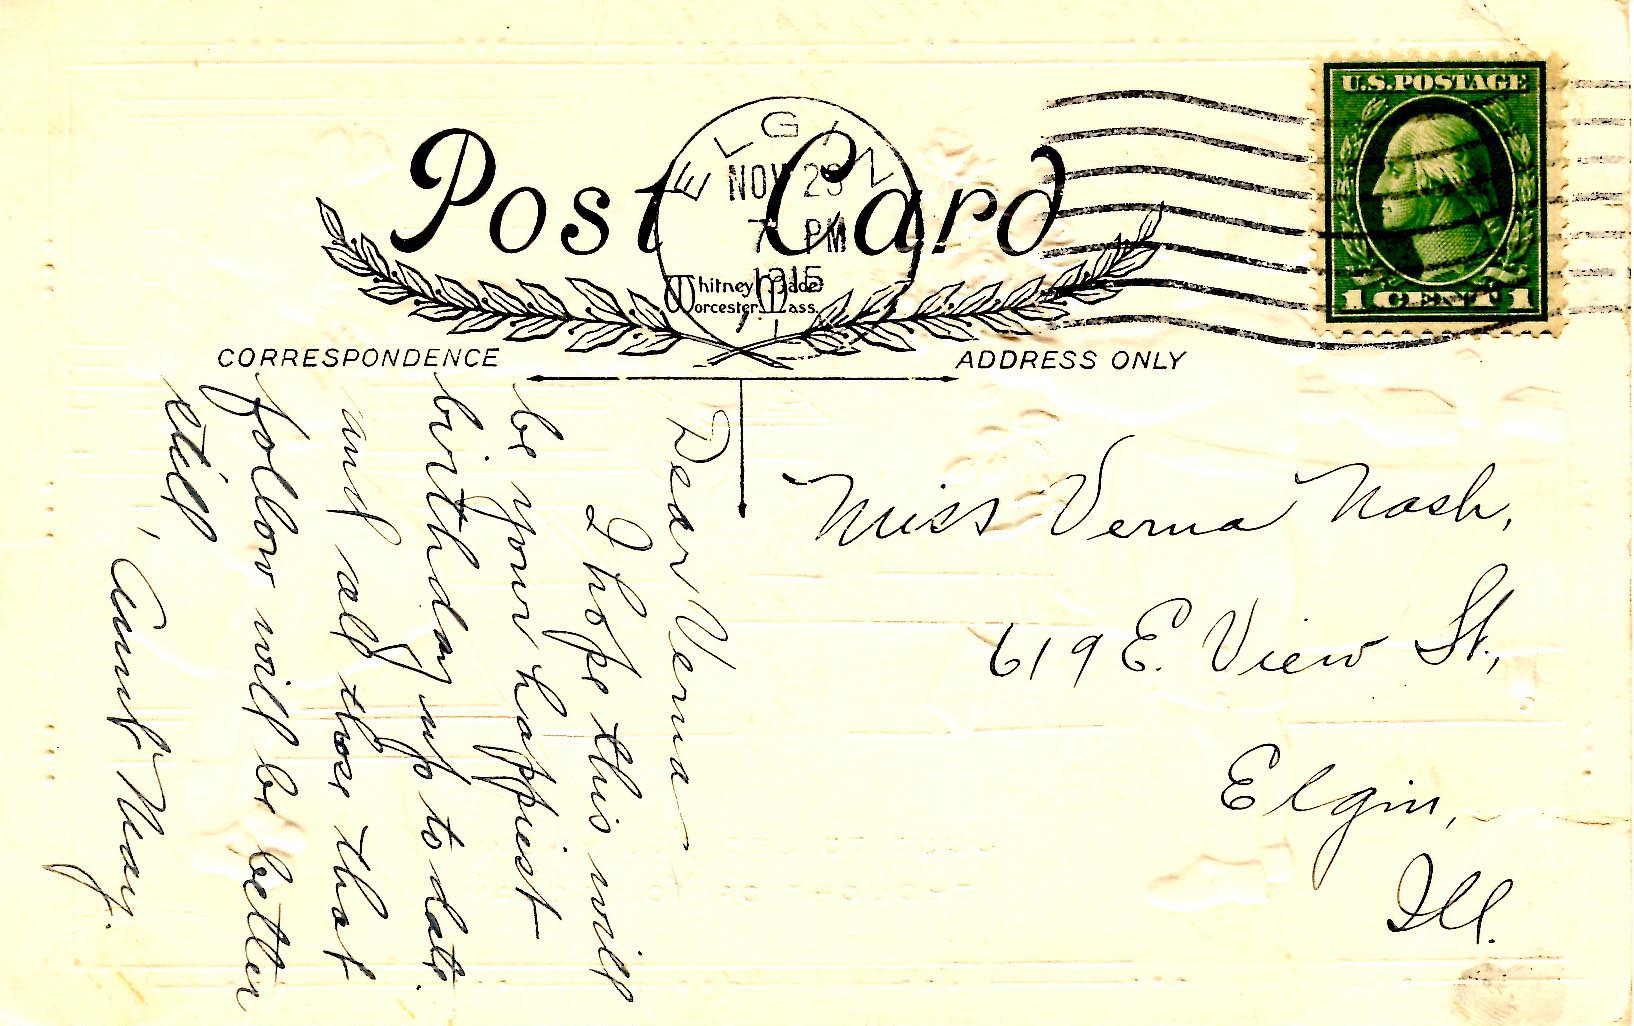 U.S. POSTAGE
1 CENT 1
ELGIN
NOV 23
7 PM
1915
ILL.
Post Card
Whitney Made
Worcester, Mass.
CORRESPONDENCE
ADDRESS ONLY
Dear Verna
I hope this will
be your happiest
birthday up to date.
and all those that
follow will be better
still,
Aunt May.
Miss Verna Nash,
619 E. View St.,
Elgin,
Ill.